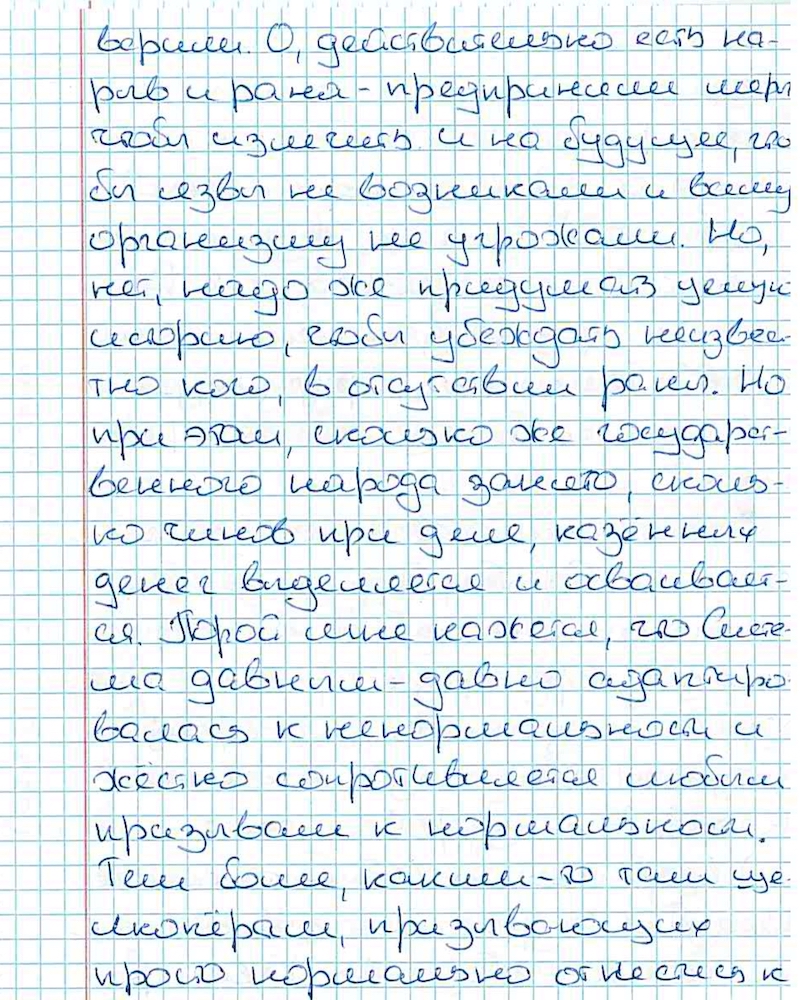 верили. О, действительно есть на-
рыв и рана - предпринели меры
чтобы излечить и на будущее, что
бы язвы не возникали и всему
организму не угрожали. Но,
нет, надо же придумать целую
историю, чтобы убеждать неизвес-
тно кого, в отсутствии раны. Но
при этом, сколько же государст-
венного народа занято, сколь-
ко чинов при деле, казённых
денег выделяется и осваивает-
ся. Порой мне кажется, что Систе-
ма давным-давно адаптиро-
валась к ненормальности и
жёстко сопротивляется любым
призывам к нормальности.
Тем более, каким-то там ще-
лкопёрам, призывающих
просто нормально отнестись к